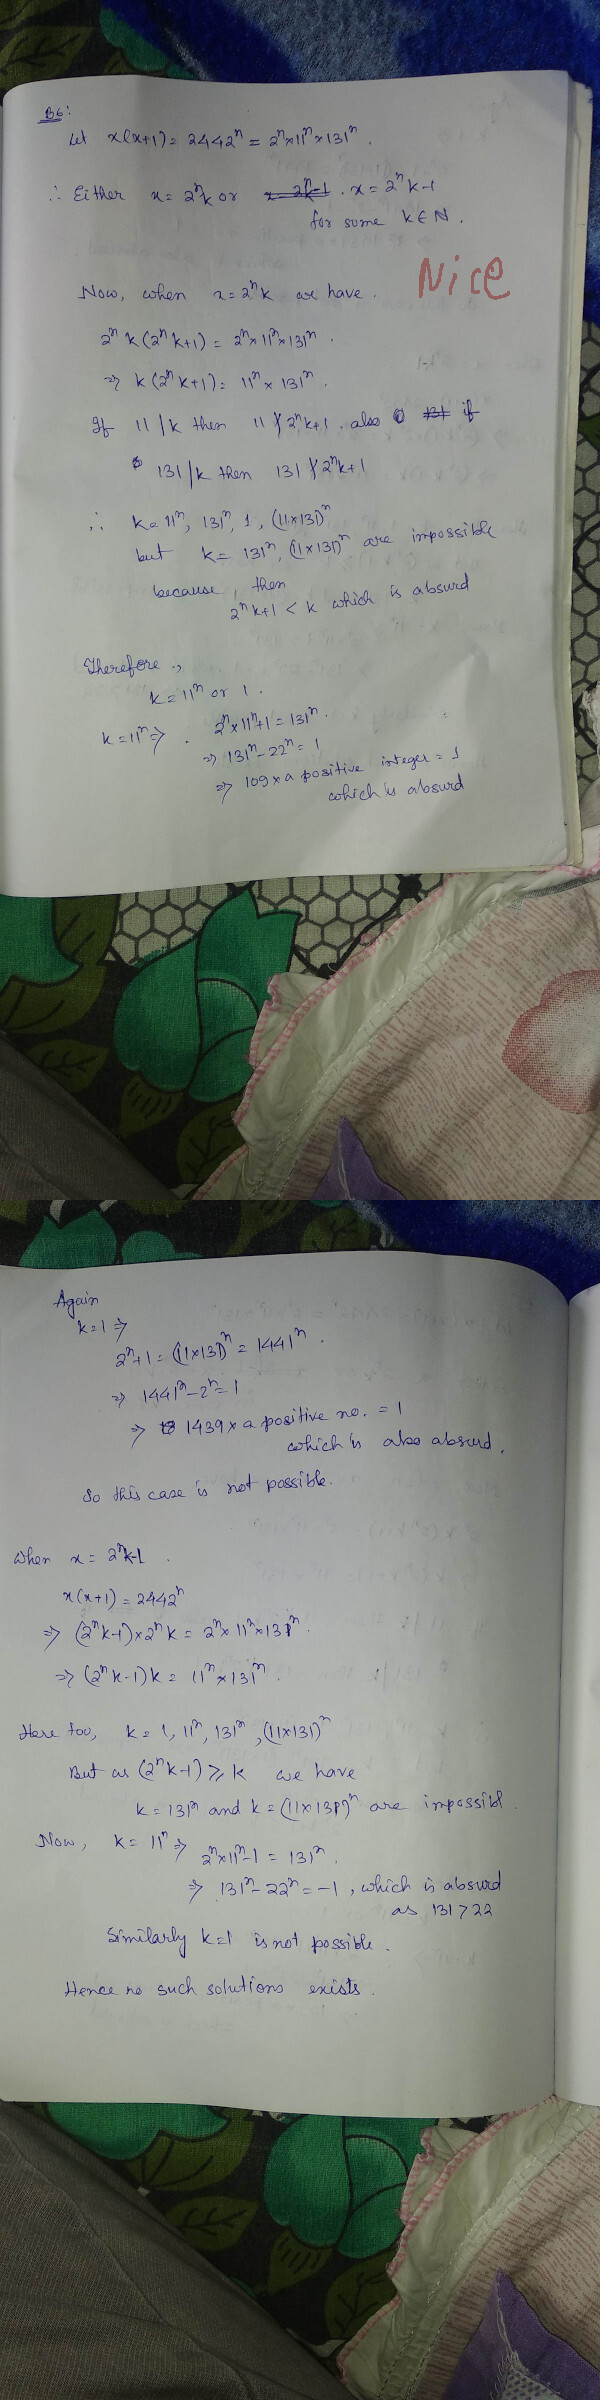 B6:
Let x(x+1) = 2442ⁿ = 2ⁿ×11ⁿ×131ⁿ.
∴ Either x = 2ⁿk or x = 2ⁿk-1
for some k∈N.
Nice
Now, when x = 2ⁿk we have.
2ⁿ k(2ⁿk+1) = 2ⁿ×11ⁿ×131ⁿ.
⇒ k(2ⁿk+1) = 11ⁿ × 131ⁿ.
If 11|k then 11∤2ⁿk+1. also if
131|k then 131∤2ⁿk+1
∴ k = 11ⁿ, 131ⁿ, 1, (11×131)ⁿ
but k = 131ⁿ, (11×131)ⁿ are impossible
because, then
2ⁿk+1 < k which is absurd
Therefore,
k = 11ⁿ or 1.
k = 11ⁿ ⇒ 2ⁿ×11ⁿ+1 = 131ⁿ.
⇒ 131ⁿ-22ⁿ = 1
⇒ 109 × a positive integer = 1
which is absurd
Again
k=1 ⇒
2ⁿ+1 = (11×131)ⁿ = 1441ⁿ.
⇒ 1441ⁿ-2ⁿ = 1
⇒ 1439 × a positive no. = 1
which is also absurd.
So this case is not possible.
When x = 2ⁿk-1.
x(x+1) = 2442ⁿ
⇒ (2ⁿk-1)×2ⁿk = 2ⁿ×11ⁿ×131ⁿ.
⇒ (2ⁿk-1)k = 11ⁿ×131ⁿ.
Here too, k = 1, 11ⁿ, 131ⁿ, (11×131)ⁿ
But as (2ⁿk-1) ⩾ k we have
k = 131ⁿ and k = (11×131)ⁿ are impossibl.
Now, k = 11ⁿ ⇒ 2ⁿ×11ⁿ-1 = 131ⁿ.
⇒ 131ⁿ-22ⁿ = -1, which is absurd
as 131>22
Similarly k=1 is not possible.
Hence no such solutions exists.